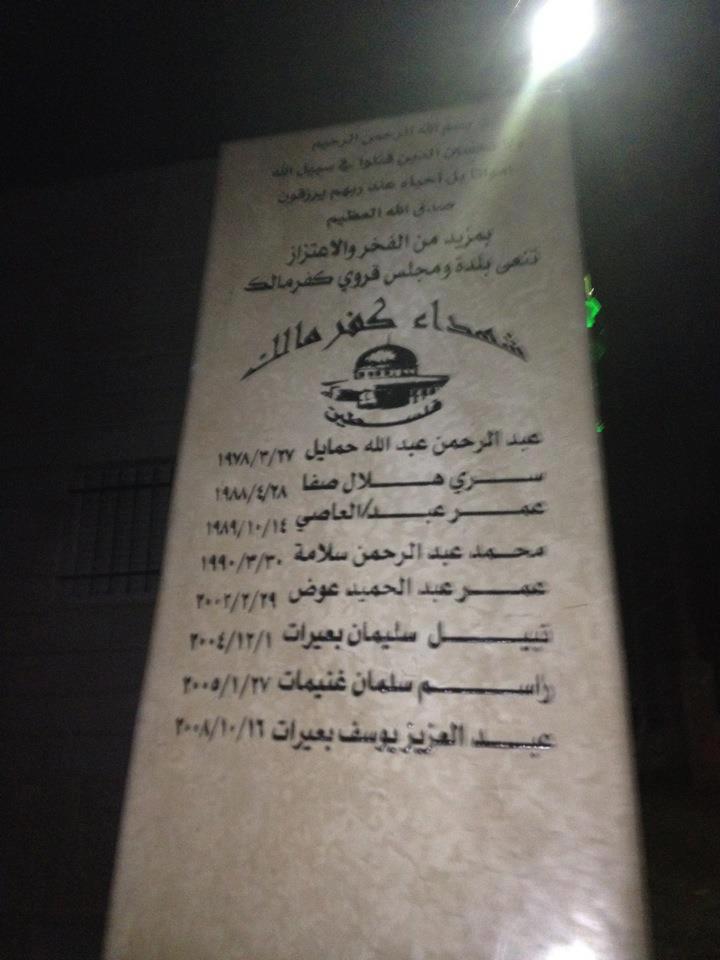 بسم الله الرحمن الرحيم
ولا تحسبن الذين قتلوا في سبيل الله
امواتا بل احياء عند ربهم يرزقون
صدق الله العظيم
بمزيد من الفخر والاعتزاز
تنعى بلدة ومجلس قروي كفرمالك
شهداء كفر مالك
فلسطين
عبد الرحمن عبد الله حمايل ١٩٧٨/٣/٢٧
سري هلال صفا ١٩٨٨/٤/٢٨
عمر عبد/العاصي ١٩٨٩/١٠/١٤
محمد عبد الرحمن سلامة ١٩٩٠/٣/٣٠
عمر عبد الحميد عوض ٢٠٠٢/٢/٢٩
نبيل سليمان بعيرات ٢٠٠٤/١٢/١
راسم سلمان غنيمات ٢٠٠٥/١/٢٧
عبد العزيز يوسف بعيرات ٢٠٠٨/١٠/١٦